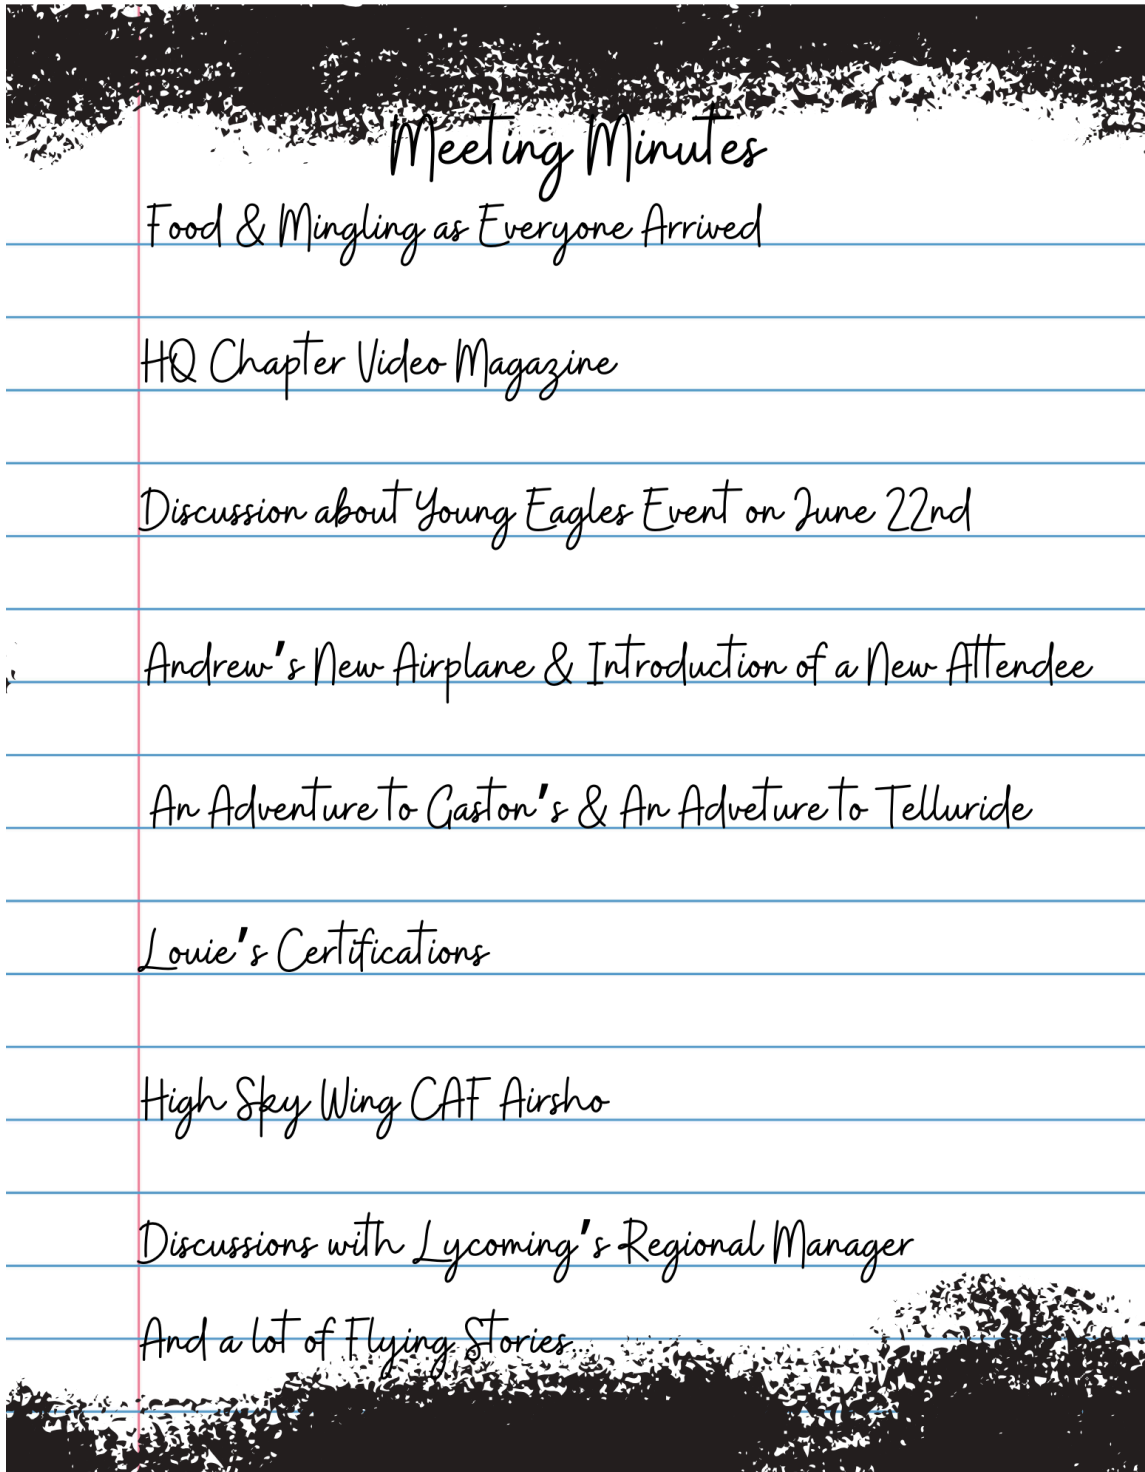 Meeting Minutes
Food & Mingling as Everyone Arrived
HQ Chapter Video Magazine
Discussion about Young Eagles Event on June 22nd
Andrew's New Airplane & Introduction of a New Attendee
An Adventure to Gaston's & An Adveture to Telluride
Louie's Certifications
High Sky Wing CAF Airsho
Discussions with Lycoming's Regional Manager
And a lot of Flying Stories